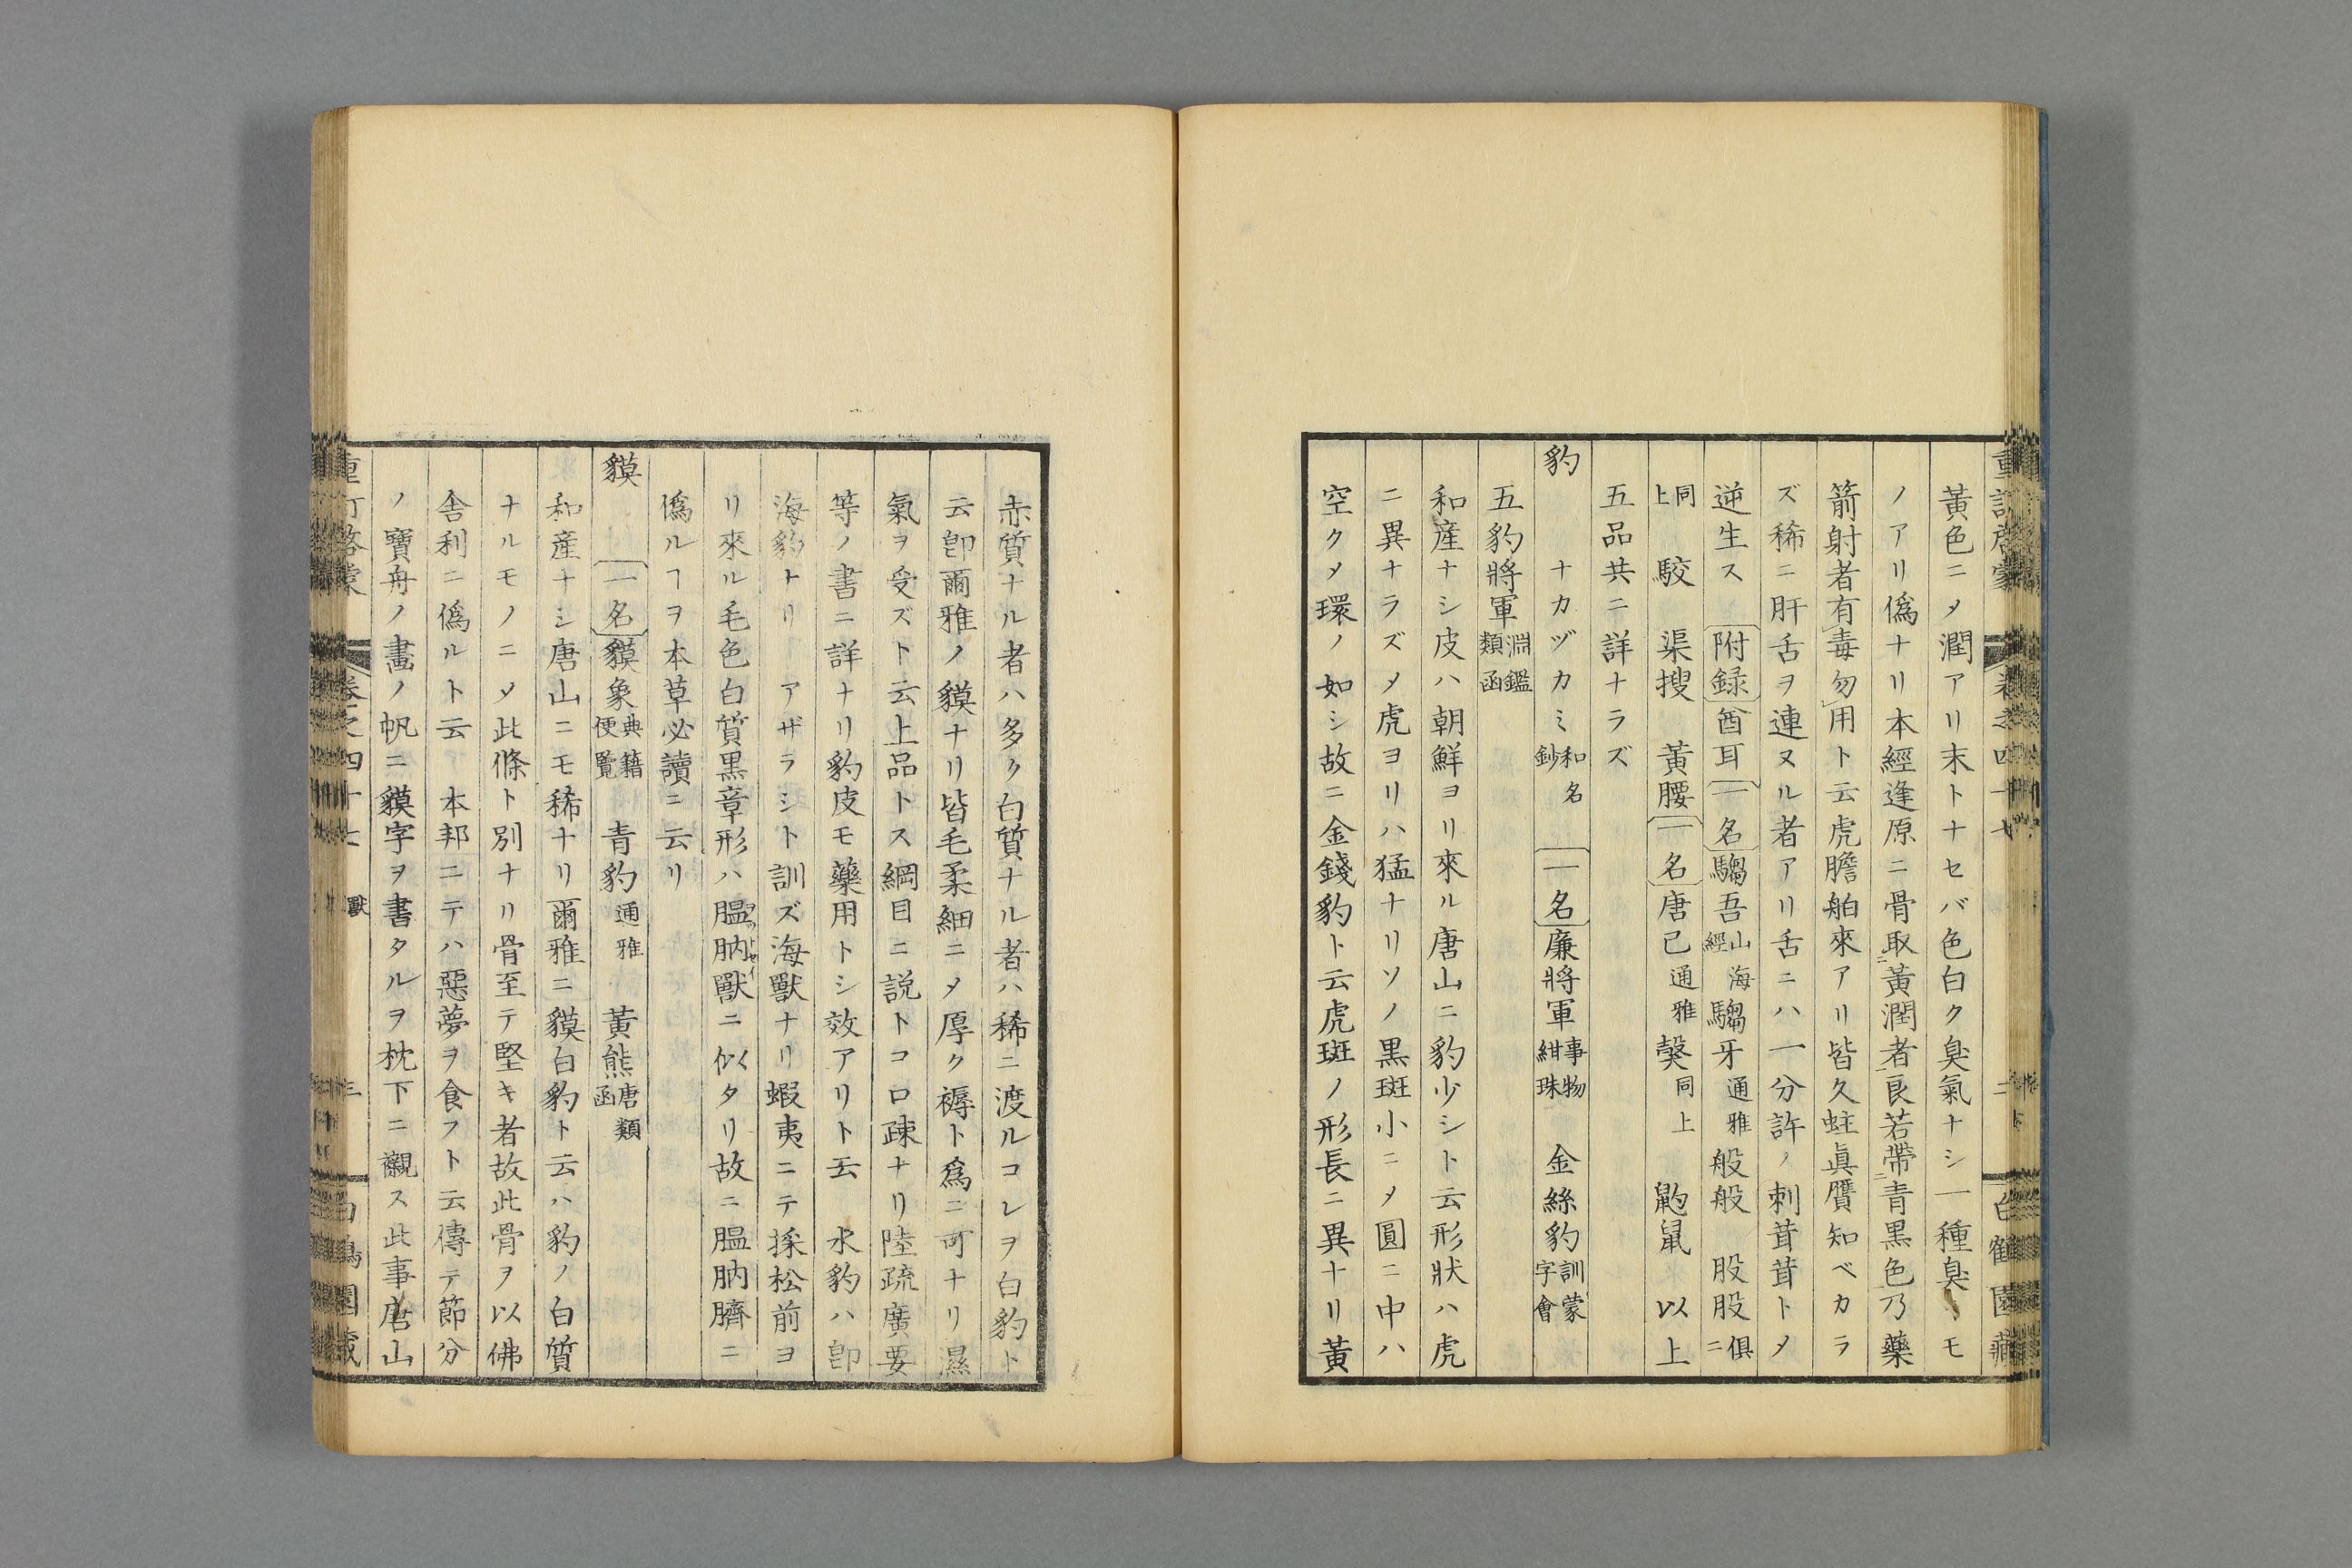 黃色ニメ潤アリ末トナセバ色白ク臭氣ナシ一種臭、モ
ノアリ僞ナリ本經逢原ニ骨取黃潤者良若帶青黒色乃藥
箭射者有毒勿用ト云虎膽舶來アリ皆久蛀眞贋知ベカラ
ズ稀ニ肝舌ヲ連ヌル者アリ舌ニハ一分許ノ刺茸茸トメ
逆生ス 附録 酋耳 一名 騶吾 山海經 騶牙 通雅 般般 股股 俱ニ
同上 駮 渠搜 黃腰 一名 唐已 通雅 㺉 同上 鼩鼠 以上
五品共ニ詳ナラズ
豹 ナカヅカミ 和名鈔 一名 廉將軍 事物紺珠 金絲豹 訓蒙字會
五豹將軍 淵鑑類函
和産ナシ皮ハ朝鮮ヨリ來ル唐山ニ豹少シト云形狀ハ虎
ニ異ナラズメ虎ヨリハ猛ナリソノ黒斑小ニメ圓ニ中ハ
空クメ環ノ如シ故ニ金錢豹ト云虎斑ノ形長ニ異ナリ黃
赤質ナル者ハ多ク白質ナル者ハ稀ニ渡ルコレヲ白豹ト
云卽爾雅ノ貘ナリ皆毛柔細ニメ厚ク褥ト爲ニ可ナリ濕
氣ヲ受ズト云上品トス綱目ニ說トコロ疎ナリ陸疏廣要
等ノ書ニ詳ナリ豹皮モ藥用トシ效アリト云 水豹ハ卽
海豹トリ アザラシト訓ズ海獸ナリ蝦夷ニテ採松前ヨ
リ來ル毛色白質黒章形ハ膃肭獸ニ似タリ故ニ膃肭臍ニ
僞ルヿヲ本草必讀ニ云リ
貘 一名 貘象 典籍便覽 青豹 通雅 黃熊 唐類函
和産ナシ唐山ニモ稀ナリ爾雅ニ貘白豹ト云ハ豹ノ白質
ナルモノニメ此條ト別ナリ骨至テ堅キ者故此骨ヲ以佛
舎利ニ僞ルト云 本邦ニテハ惡夢ヲ食フト云傳テ節分
ノ寶舟ノ畵ノ帆ニ貘字ヲ書タルヲ枕下ニ襯ス此事唐山